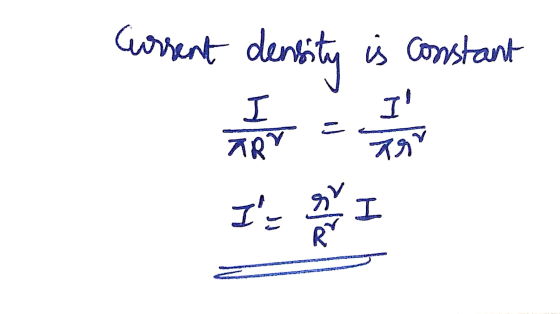 Current density is constant
I/πR² = I'/πr²
I' = r²/R² I